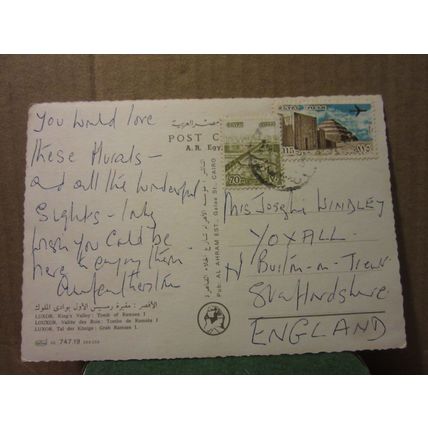 You would love
these Murals -
and all the wonderful
Sights - I only
wish you could be
here enjoying them.
الأقصر: مقبرة رمسيس الأول بوادي الملوك
LUXOR, King's Valley: Tomb of Ramses I
LOUXOR, Vallée des Rois: Tombe de Ramsès I
LUXOR, Tal der Könige: Grab Ramses I.
747.19
POST C
A. R. Egy
مصر العربية
Pub: AL AHRAM EST.
CAIRO
70
115
Miss Josephine WINDLEY
YOXALL.
N Burton-on-Trent
Staffordshire
ENGLAND